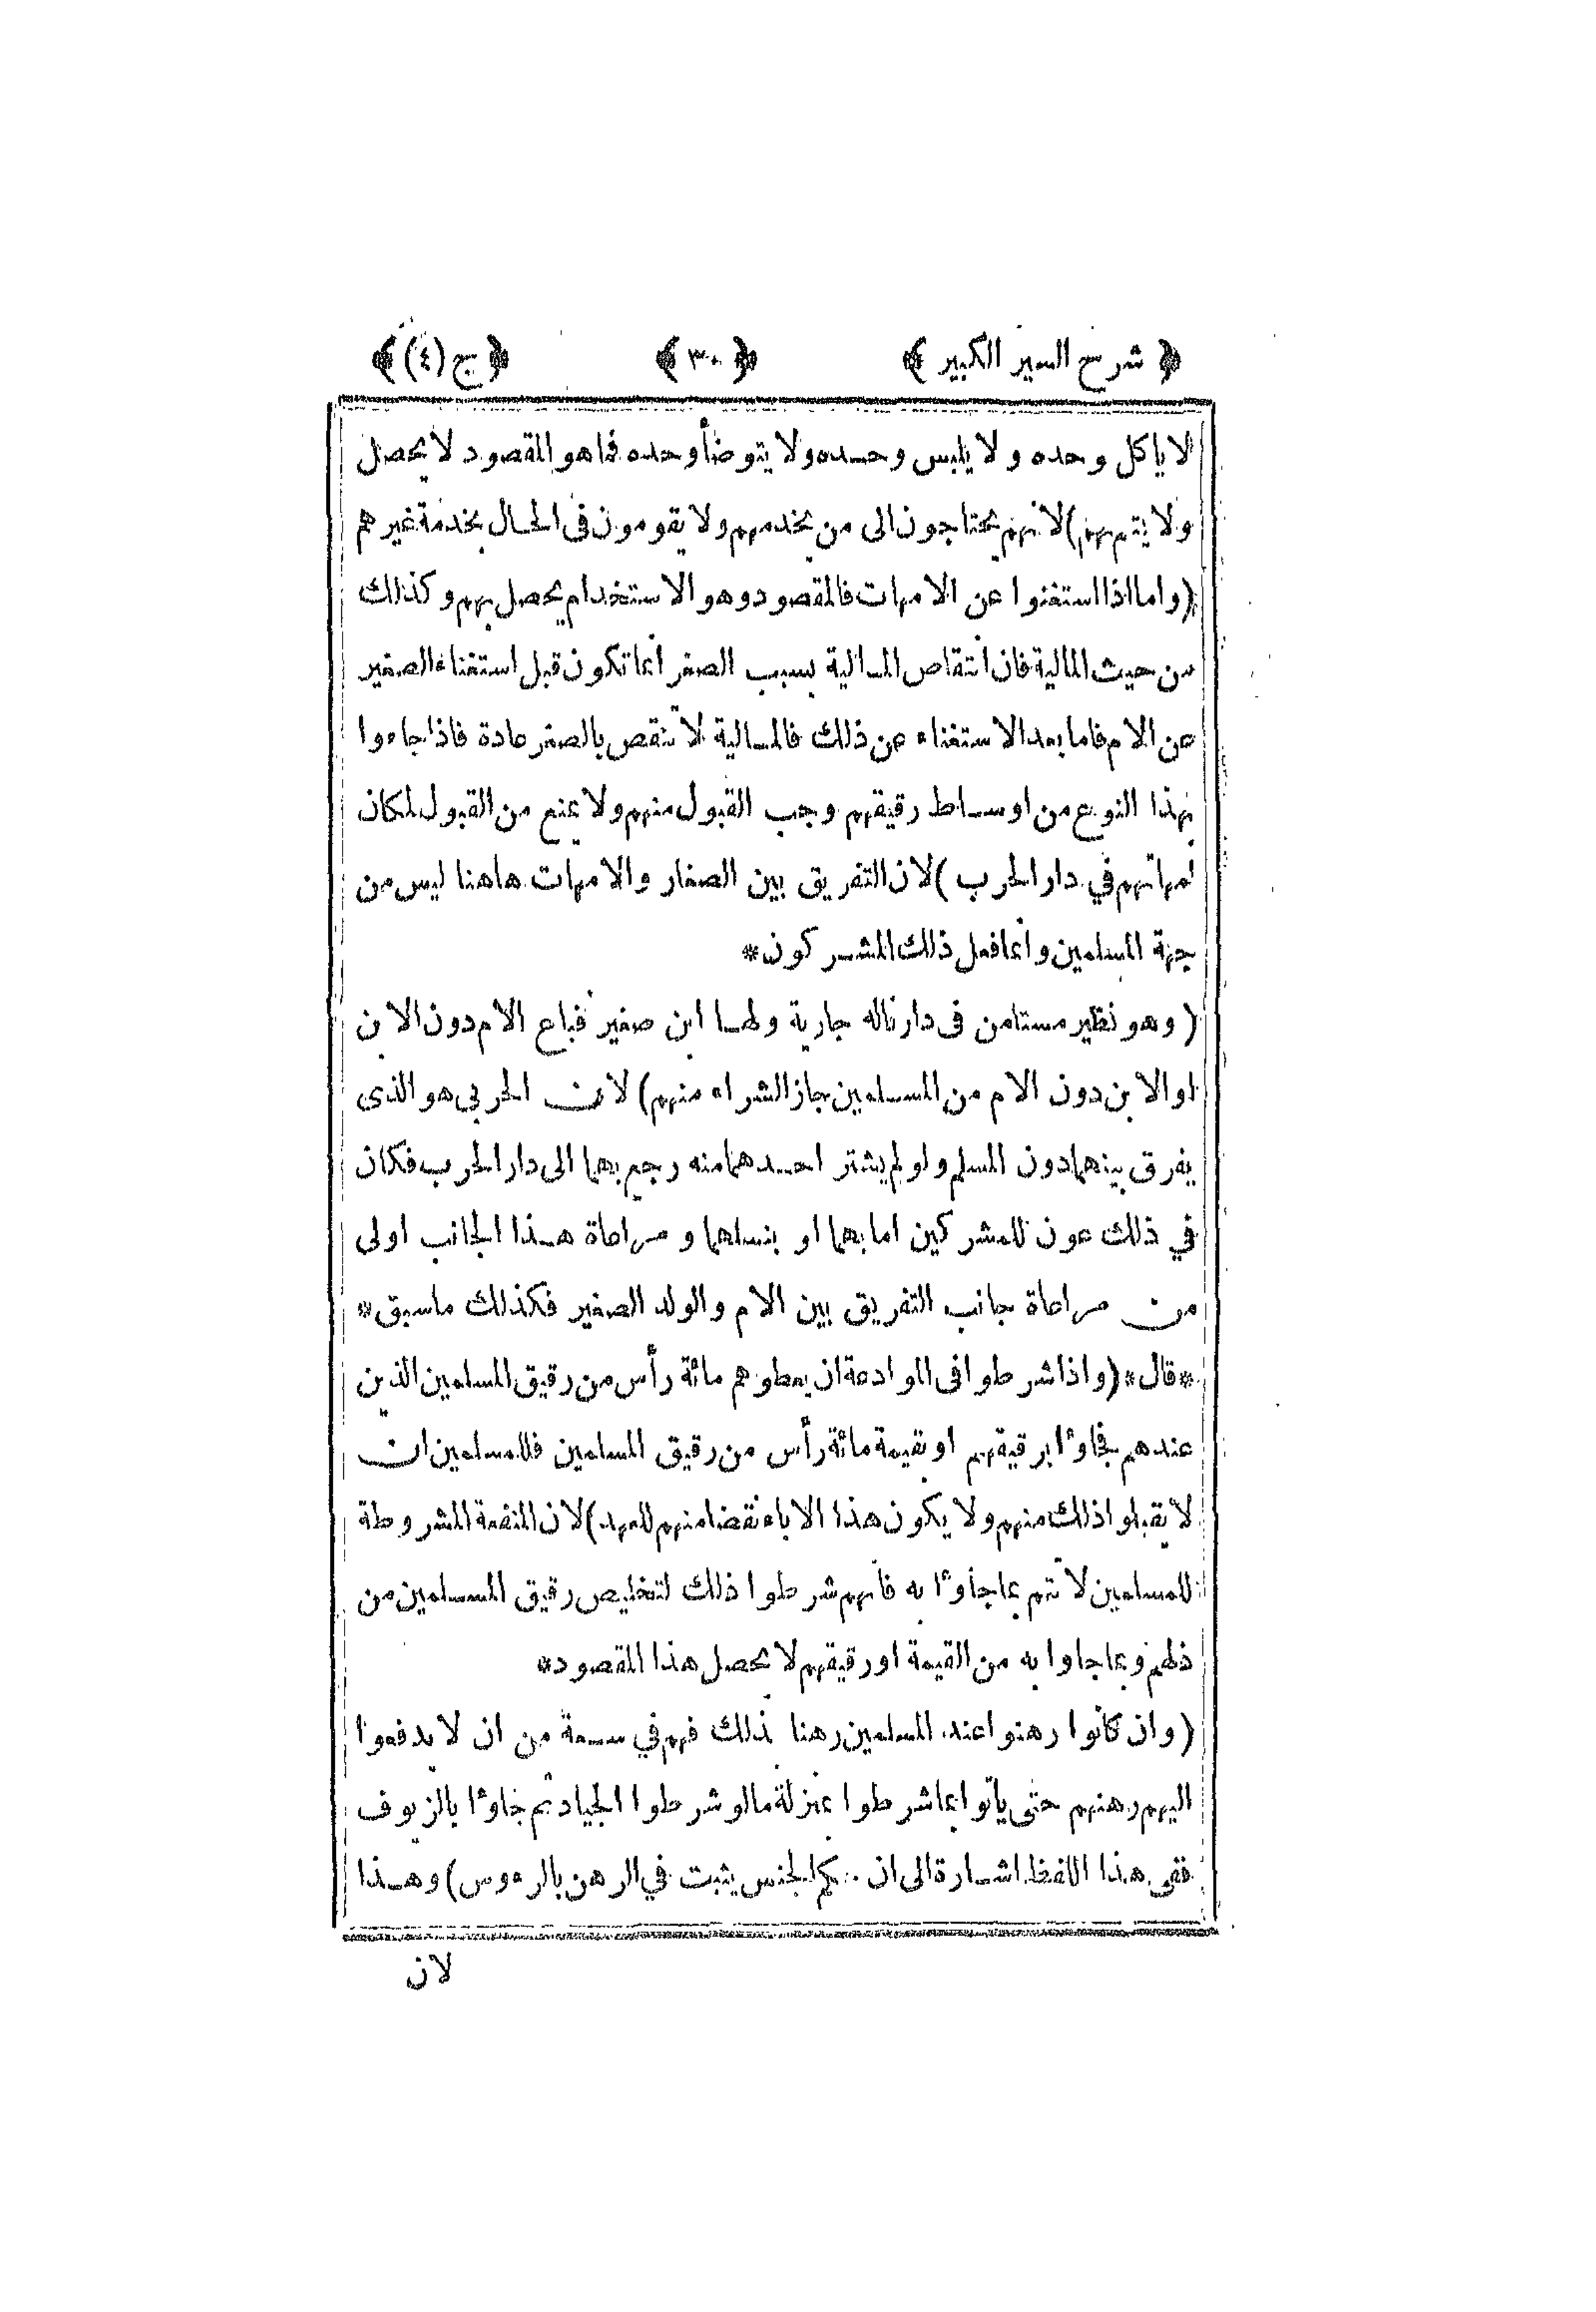 ﴿ شرح السير الكبير ﴾ ﴿ ٣٠ ﴾ ﴿ ج (٤) ﴾
لا ياكل وحده ولا يلبس وحده ولا يتوضأ وحده فما هو المقصود لا يحصل
ولا يتم بهم) لانهم يحتاجون الى من يخدمهم ولا يقومون فى الحال بخدمة غيرهم
(واما اذا استغنوا عن الامهات فالمقصود وهو الاستخدام يحصل بهم وكذلك
من حيث المالية فان انتقاص المالية بسبب الصغر انما تكون قبل استغناء الصغير
عن الام فاما بعد الاستغناء عن ذلك فالمالية لا تنقص بالصغر عادة فاذا جاءوا
بهذا النوع من اوساط رقيقهم وجب القبول منهم ولا يمنع من القبول لمكان
امهاتهم في دار الحرب) لان التفريق بين الصغار والامهات هاهنا ليس من
جهة المسلمين وانما فعل ذلك المشركون*
(وهو نظير مستامن فى دارناله جارية ولها ابن صغير فباع الام دون الابن
او الابن دون الام من المسلمين جاز الشراء منهم) لان الحربي هو الذي
يفرق بينهما دون المسلم ولو لم يشتر احدهما منه رجع بهما الى دار الحرب فكان
في ذلك عون للمشركين اما بهما او بنسلهما ومراعاة هذا الجانب اولى
من مراعاة جانب التفريق بين الام والولد الصغير فكذلك ماسبق*
*قال* (واذا شرطوا فى الموادعة ان يعطوهم مائة رأس من رقيق المسلمين الذين
عندهم فجاؤا برقيقهم او بقيمة مائة رأس من رقيق المسلمين فللمسلمين ان
لا يقبلوا ذلك منهم ولا يكون هذا الاباء نقضا منهم للعهد) لان المنفعة المشروطة
للمسلمين لا تتم بما جاؤا به فانهم شرطوا ذلك لتخليص رقيق المسلمين من
ذلهم وبما جاوا به من القيمة او رقيقهم لا يحصل هذا المقصود*
(وان كانوا رهنوا عند المسلمين رهنا بذلك فهم في سعة من ان لا يدفعوا
اليهم رهنهم حتى ياتوا بما شرطوا بمنزلة مالو شرطوا الجياد ثم جاؤا بالزيوف
ففى هذا اللفظ اشارة الى ان الجنس يثبت في الرهن بالرءوس) وهذا
لان